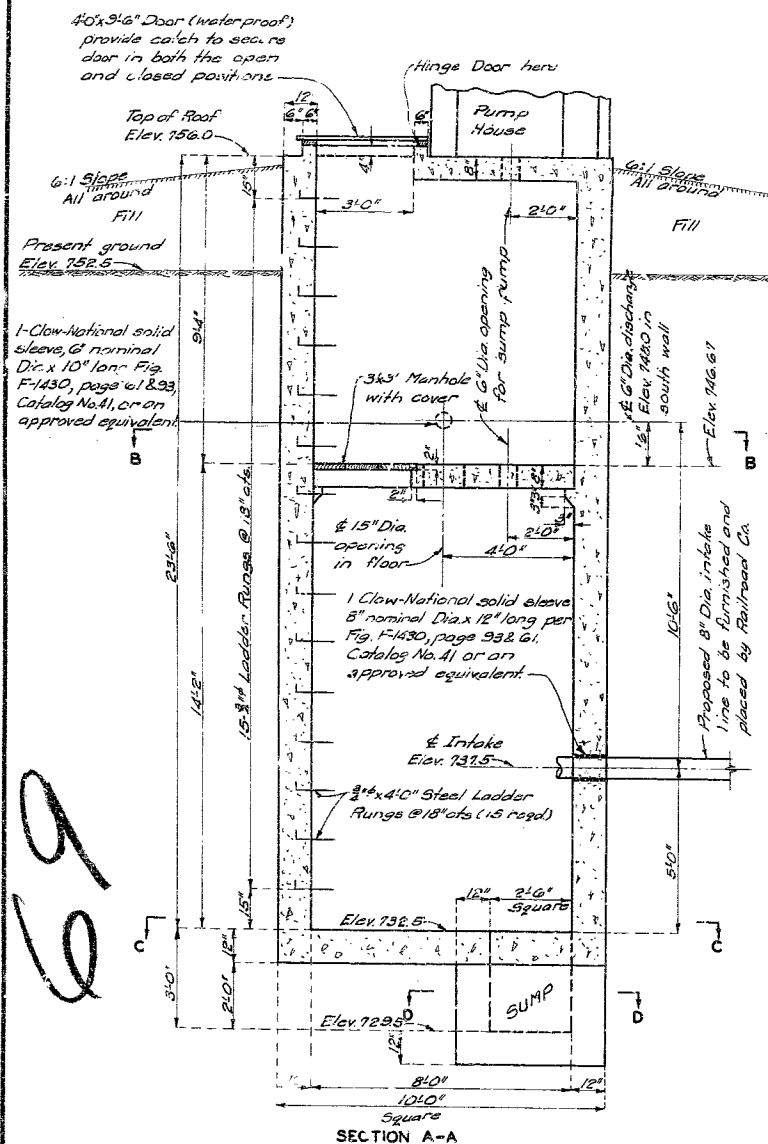 4'-0"x3'-6" Door (waterproof)
provide catch to secure
door in both the open
and closed positions
Hinge Door here
12
6" 6"
6"
Pump
House
Top of Roof
Elev. 756.0
4"
8"
6:1 Slope
All around
Fill
15"
3'-0"
2'-0"
6:1 Slope
All around
Fill
Present ground
Elev. 752.5
9'-4"
1-Clow-National solid
sleeve, 6" nominal
Dia. x 10" long Fig.
F-1430, page 61 & 93,
Catalog No. 41, or an
approved equivalent
3'x3' Manhole
with cover
℄ 6" Dia. opening
for sump pump
℄ 6" Dia. discharge
Elev. 748.0 in
south wall
Elev. 746.67
B
B
2"
2"
8"
3"
3"
2'-0"
4'-0"
℄ 15" Dia.
opening
in floor
23'-6"
14'-2"
15-¾"φ Ladder Rungs @ 18" cts.
1 Clow-National solid sleeve
8" nominal Dia. x 12" long per
Fig. F-1430, page 93 & 61.
Catalog No. 41 or an
approved equivalent
10'-6"
Proposed 8" Dia. intake
line to be furnished and
placed by Railroad Co.
℄ Intake
Elev. 737.5
¾"φ x 4'-0" Steel Ladder
Rungs @ 18" cts (15 reqd)
5'-0"
69
15"
12"
2'-6"
Square
C
Elev. 732.5
C
12"
3'-0"
2'-0"
SUMP
D
D
Elev. 729.5
12"
8'-0"
12"
10'-0"
Square
SECTION A-A